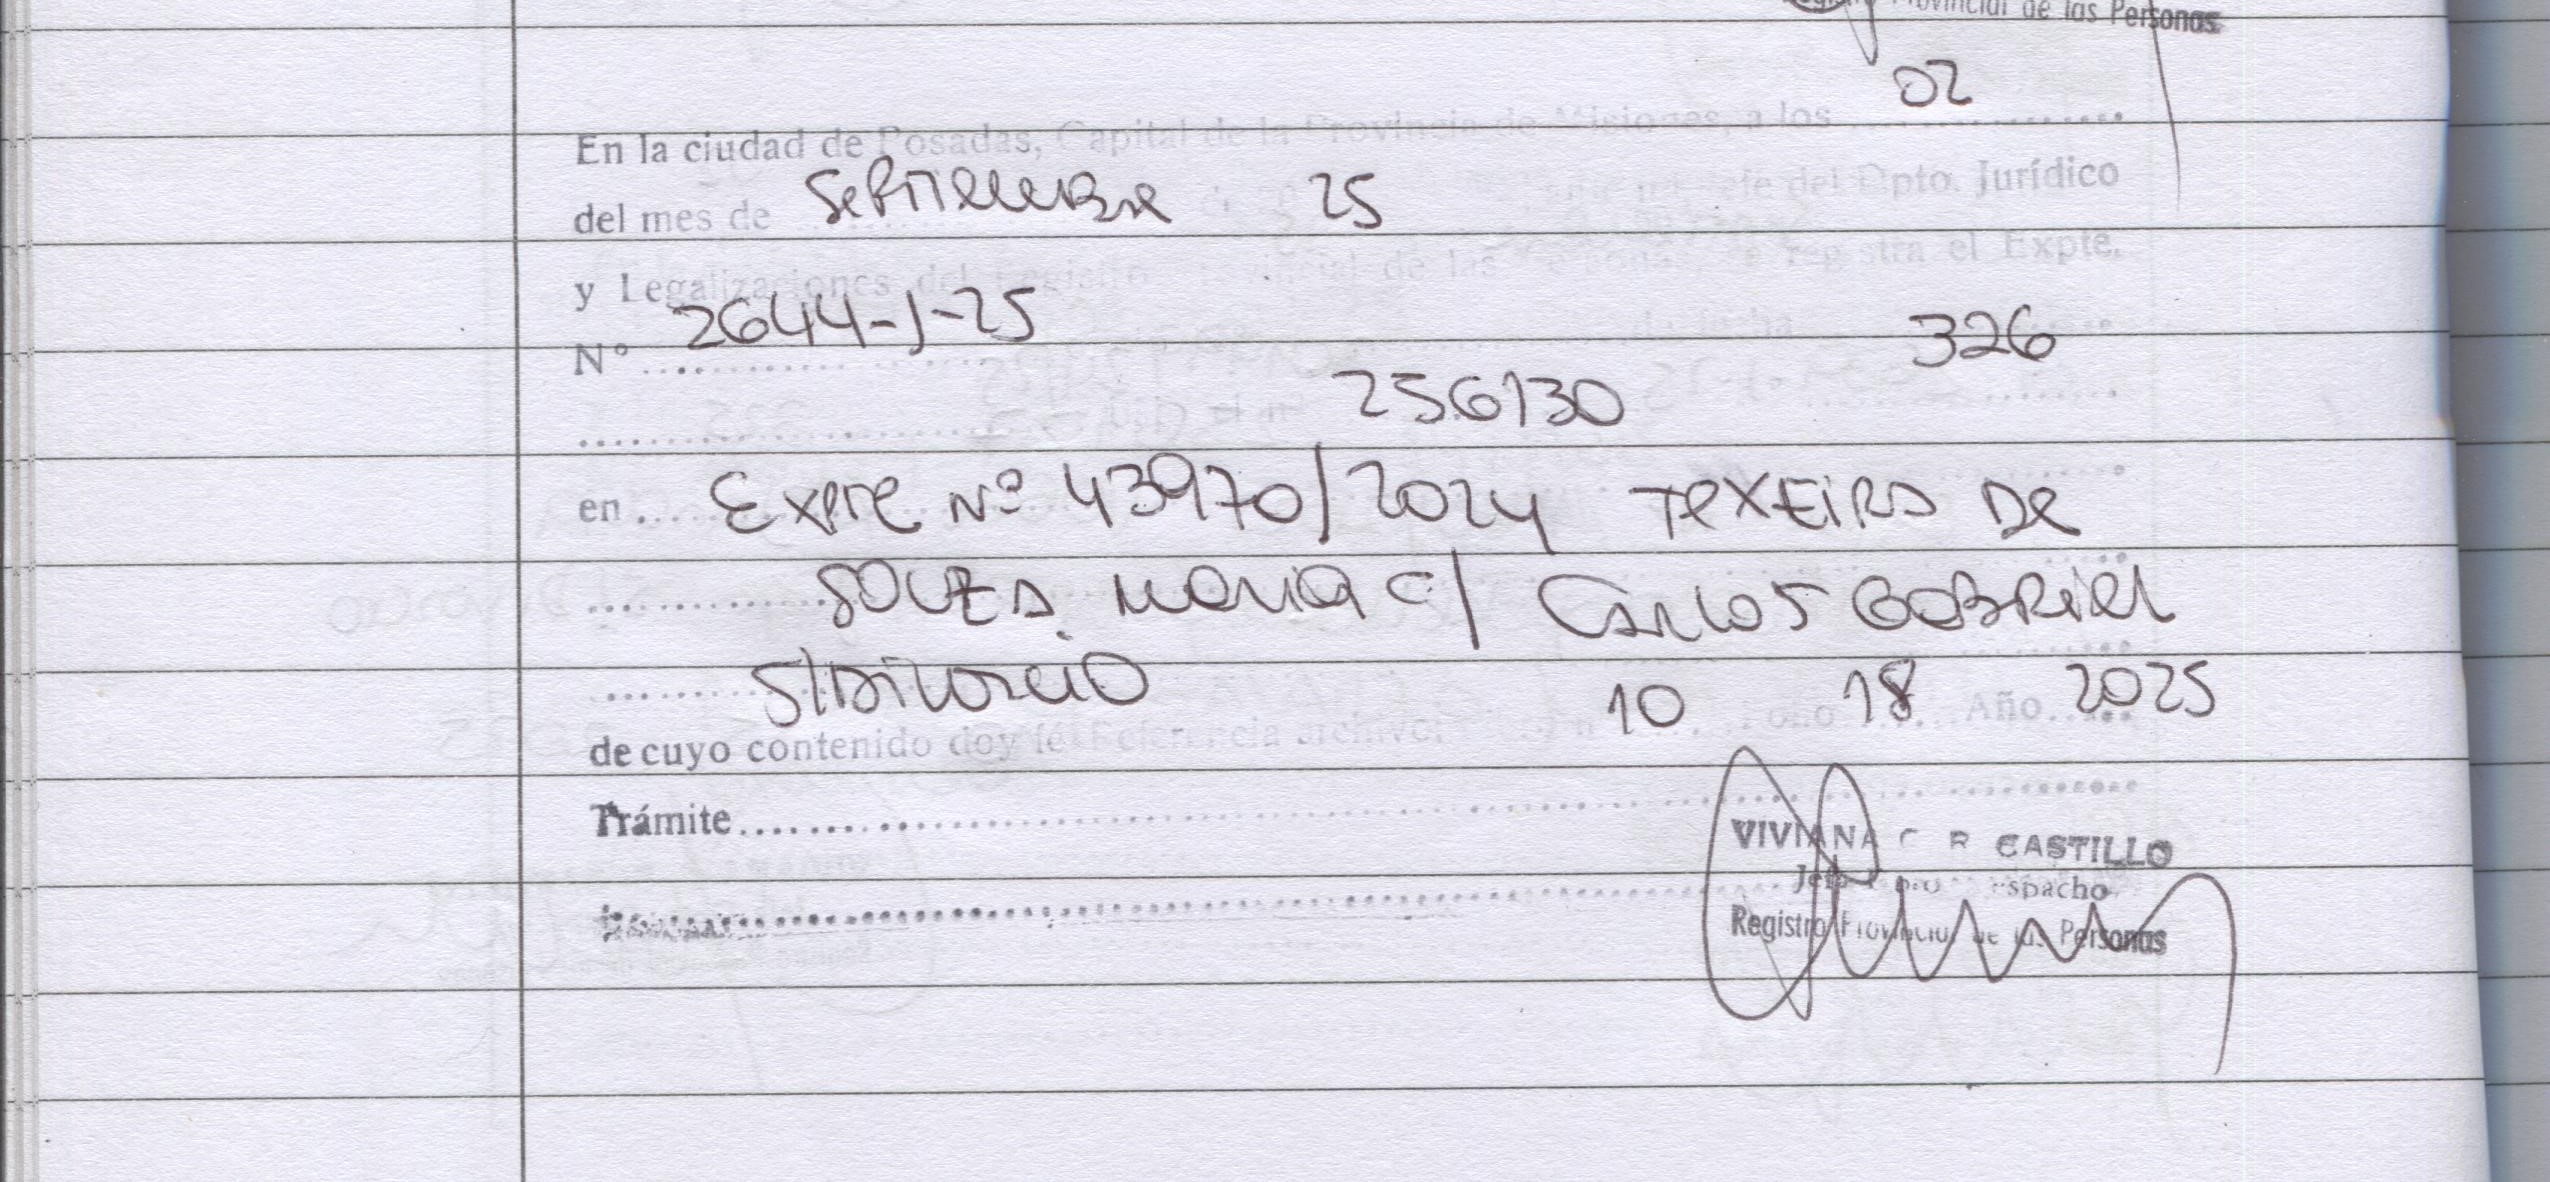 Provincial de las Personas
02
En la ciudad de Posadas, Capital de la Provincia de Misiones, a los
del mes de Septiembre 25 Jefe del Dpto. Jurídico
y Legalizaciones del Registro Provincial de las Personas, se registra el Expte.
N° 2644-J-25 de fecha 326
256130
en Expte Nº 43970/2024 Texeira De
Souza Maria c/ Carlos Gabriel
S/Divorcio 10 18 2025
de cuyo contenido doy fé Referencia archivo: Folio Año
Trámite
VIVIANA CASTILLO
Despacho
Registro Provincial de las Personas